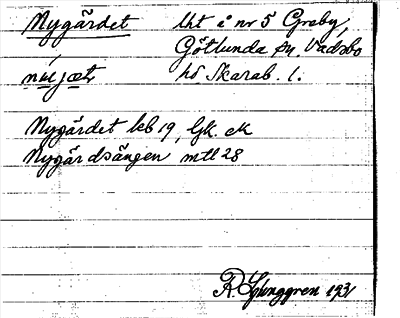 Nygärdet lht å nr 5 Greby,
Götlunda sn. Vadsbo
nyjæt hd Skarab. l.
Nygärdet kb 19, Gk. ek
Nygärdsängen mtl 28
R. Ljunggren 1931